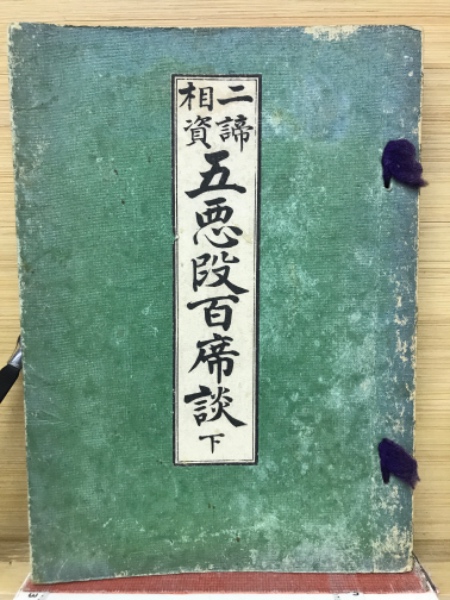 二諦
相資
五悪段百席談
下